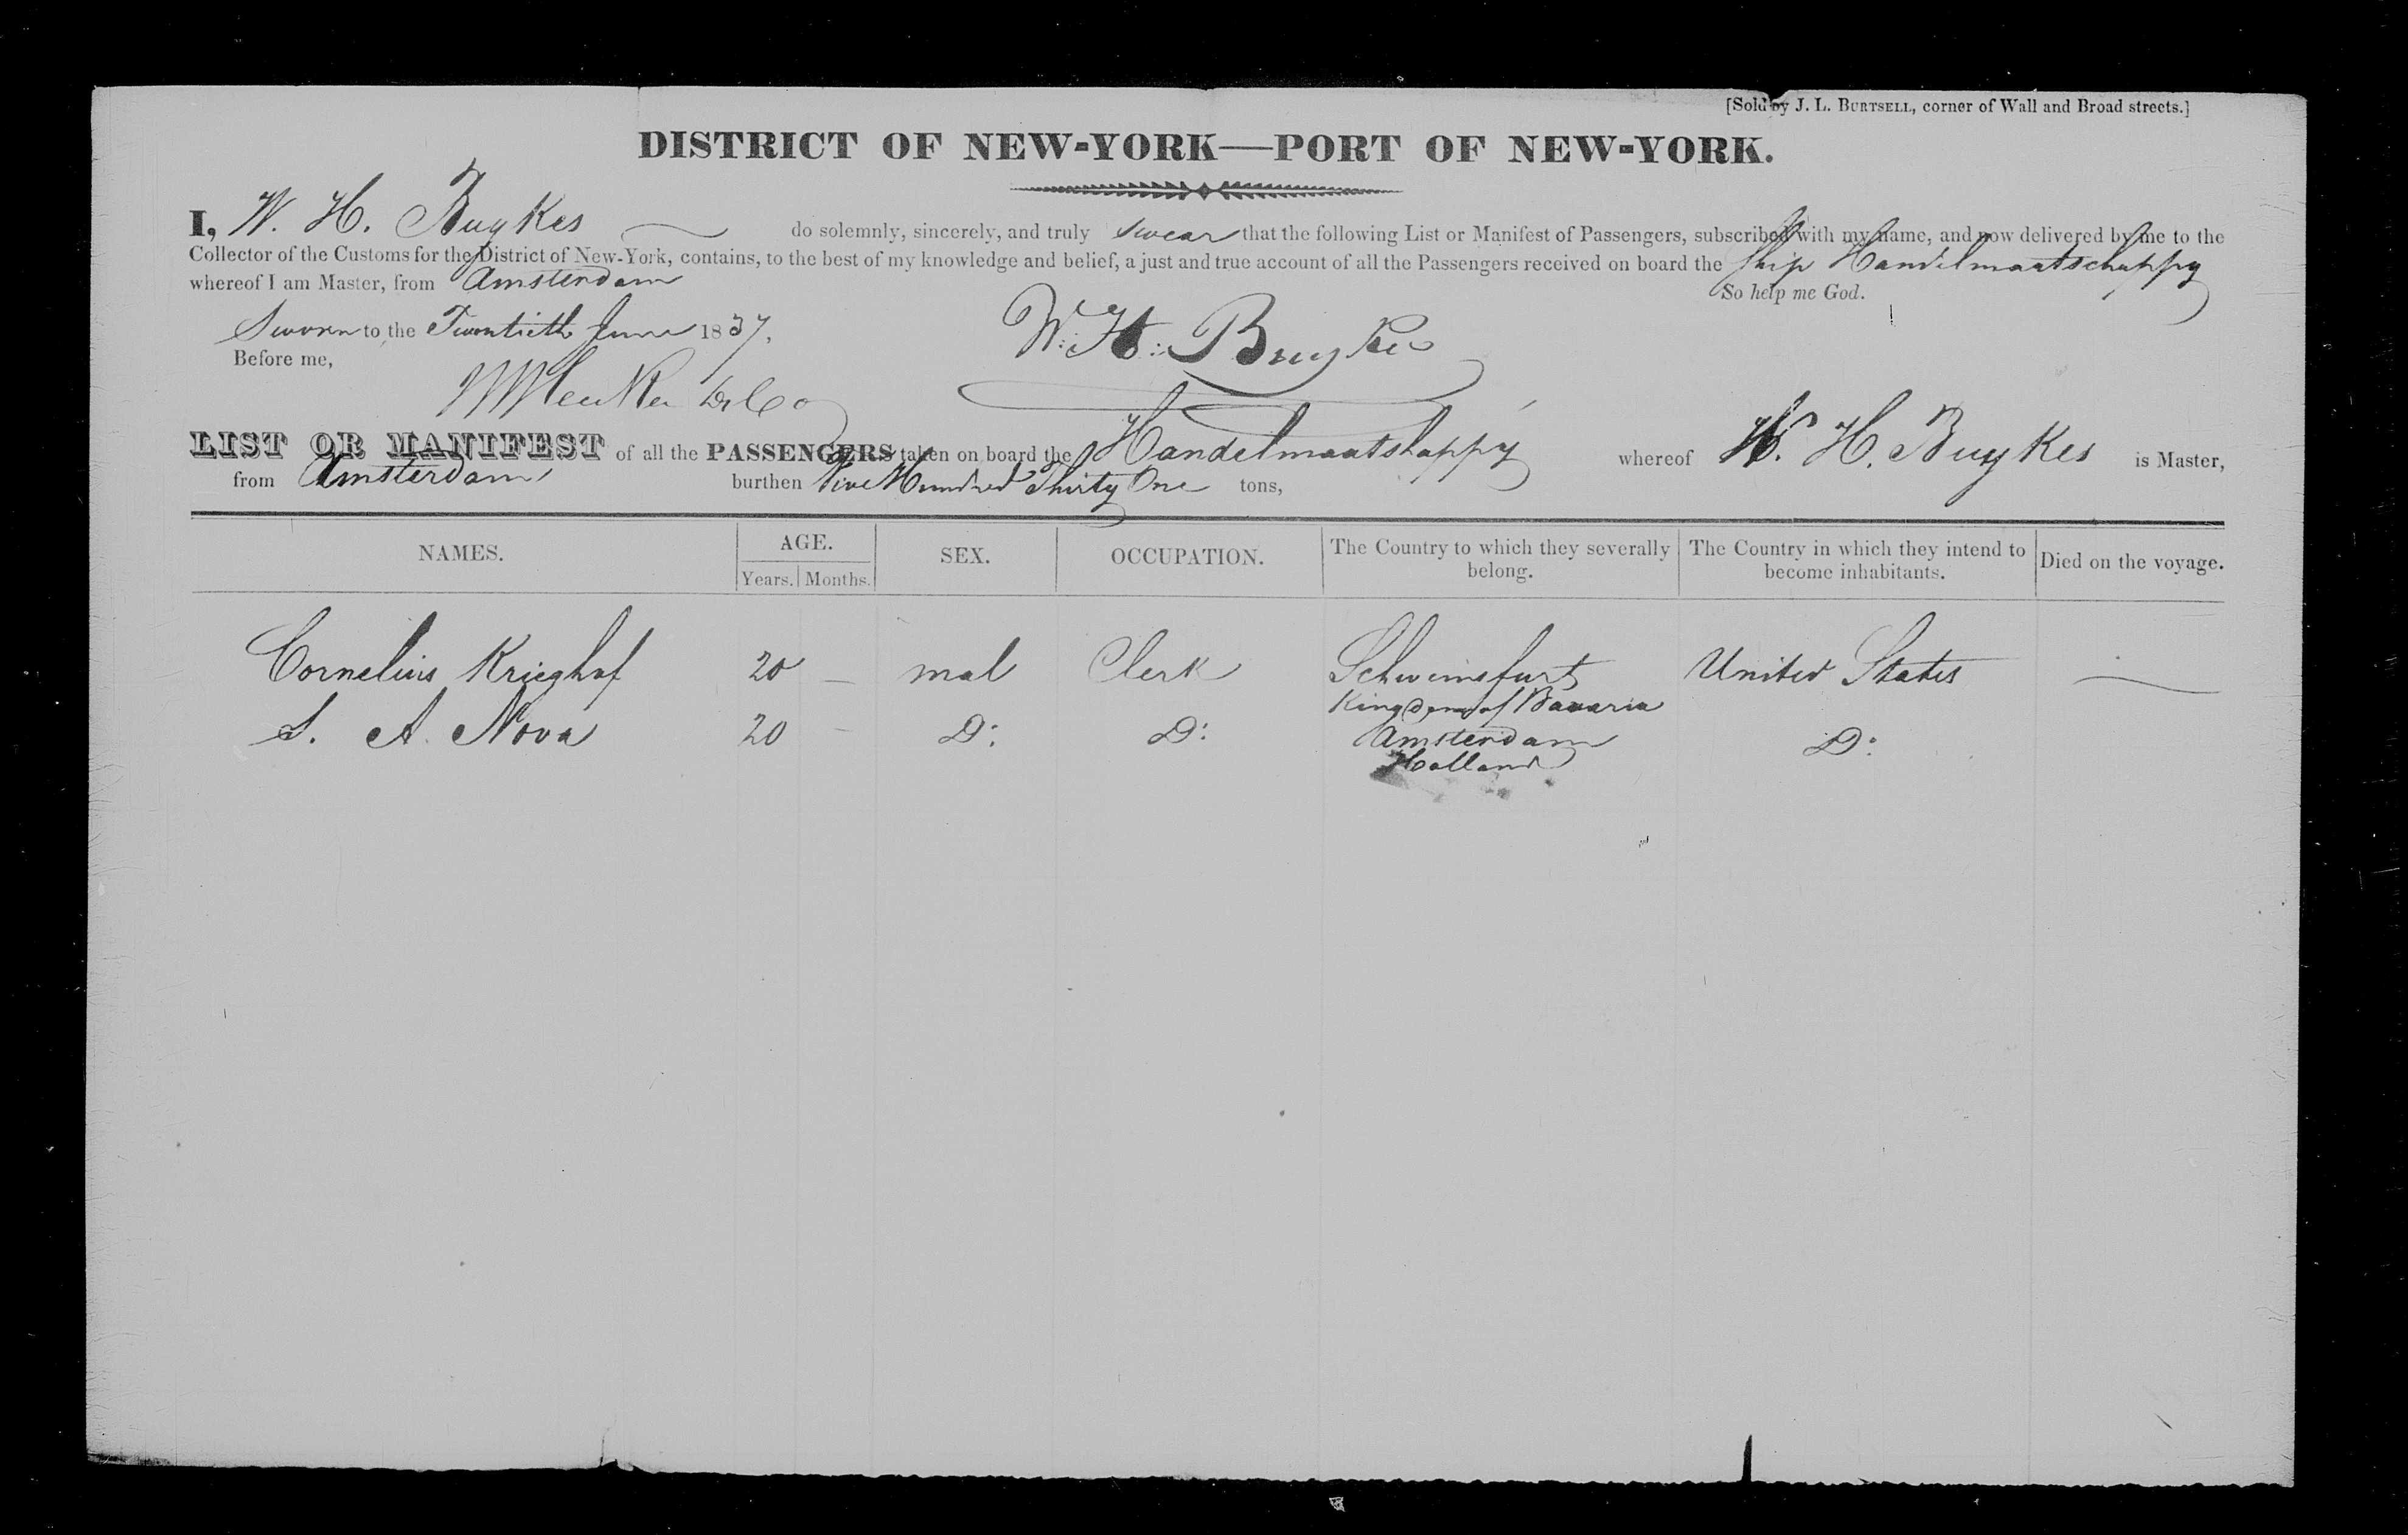 [Sold by J. L. BURTSELL, corner of Wall and Broad streets.]
DISTRICT OF NEW-YORK—PORT OF NEW-YORK.
I, W. H. Buykes do solemnly, sincerely, and truly swear that the following List or Manifest of Passengers, subscribed with my name, and now delivered by me to the
Collector of the Customs for the District of New-York, contains, to the best of my knowledge and belief, a just and true account of all the Passengers received on board the Ship Handelmaatschappy
whereof I am Master, from Amsterdam
So help me God.
Sworn to the Twentieth June 1837.
W: H: Buykes
Before me,
LIST OR MANIFEST of all the PASSENGERS taken on board the Handelmaatshappy whereof W. H. Buykes is Master,
from Amsterdam burthen Five Hundred Thirty One tons,
NAMES. AGE. SEX. OCCUPATION. The Country to which they severally belong. The Country in which they intend to become inhabitants. Died on the voyage.
Years. Months.
Cornelius Krieghof 20 — mal Clerk Schweinsfurt United States —
Kingdom of Bavaria
S. A. Nova 20 — D: D: Amsterdam D:
Holland